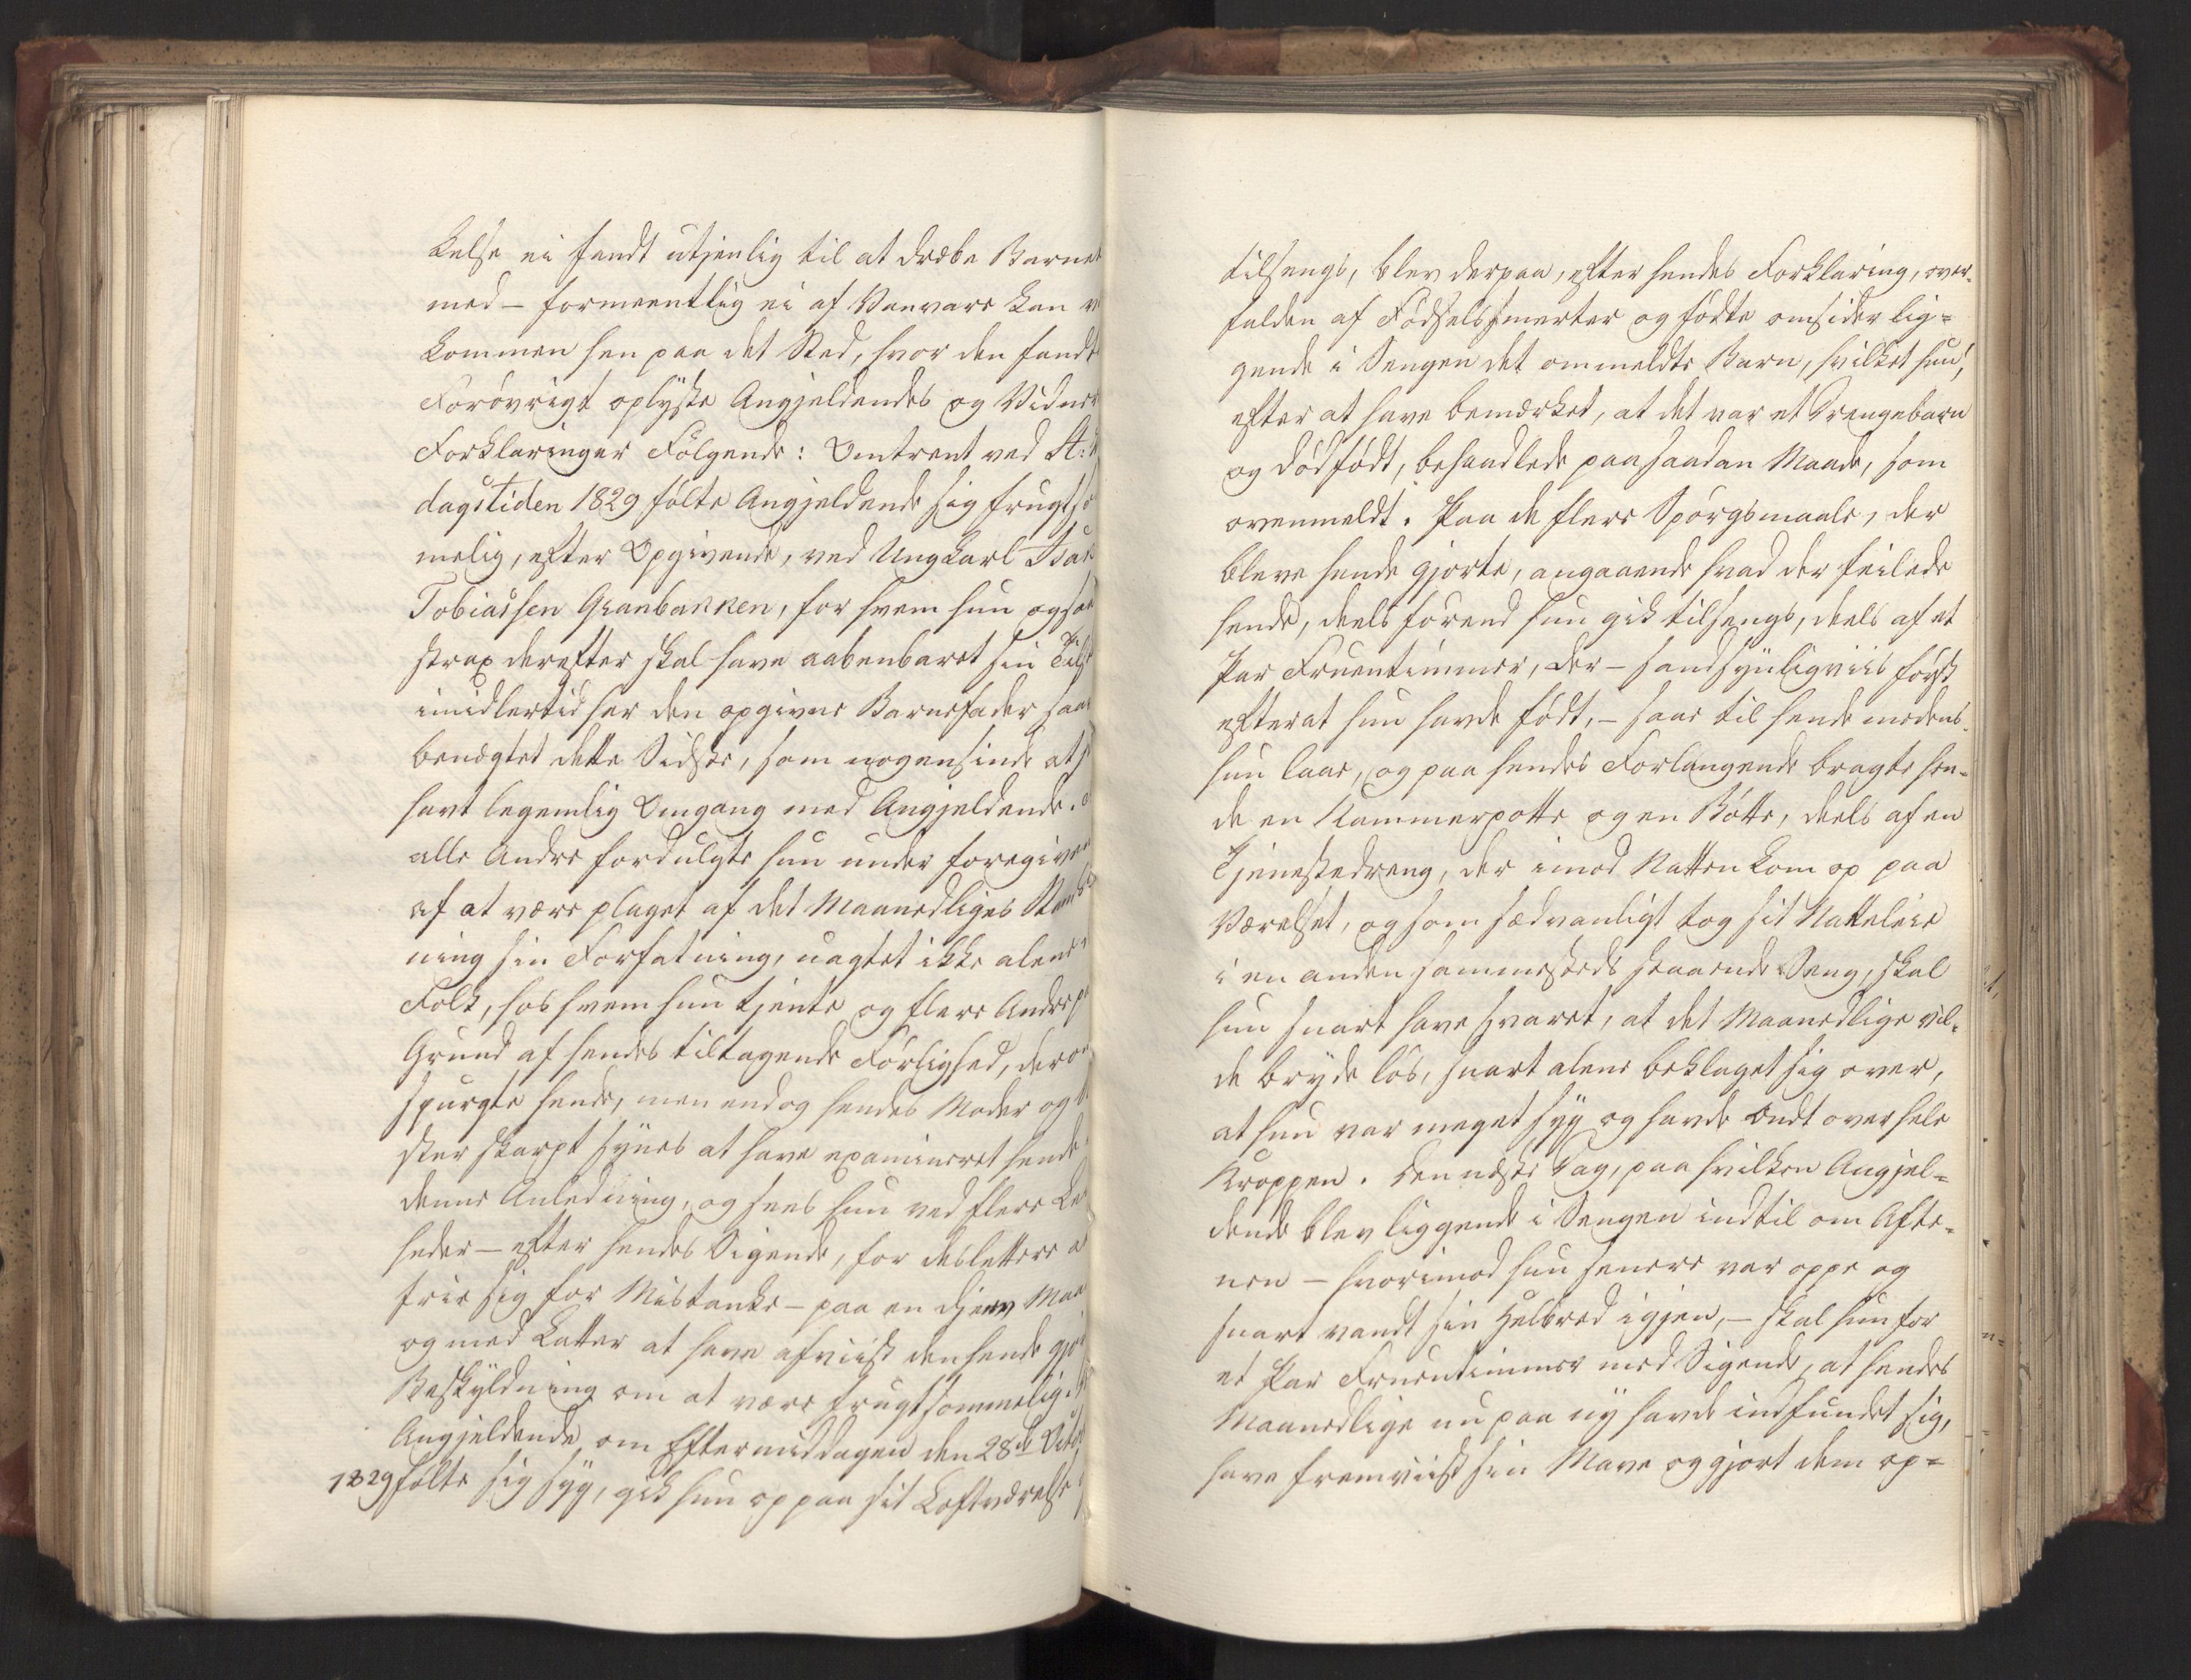 kelse ei fandt utjenlig til at dræbe Barnet
med – formeentlig ei af Vanvare kan
kommen hen paa det Sted, hvor den fandt
Forøvrigt oplyste Angjeldendes og Vidner
Forklaringer Følgende: Omtrent ved
dagstiden 1829 følte Angjeldende sig frugtso
melig, efter Opgivende, ved Ungkarl Isak
Tobiassen Granbakken, for hvem hun ogsaa
strax derefter skal have aabenbaret sin Tilst
imidlertid har den opgivne Barnefader saa
benægtet dette Sidste, som nogensinde at
havt legemlig Omgang med Angjeldende.
alle Andre fordulgte hun under foregiven
af at være plaget af det Maanedliges Stands
ning sin Forfatning, uagtet ikke alene
Folk, hos hvem hun tjente og flere Andre p
Grund af hendes tiltagende Førlighed, derom
spurgte hende, men endog hendes Moder og
ster skarpt synes at have examineret hende
denne Anledning, og sees hun ved flere Lei
heder – efter hendes Sigende, for deslettere a
frie sig for Mistanke – paa en djerv Maa
og med Latter at have afviist den hende gjor
Beskyldning om at være frugtsommelig.
Angjeldende om Eftermiddagen den 28de Octob
1829 følte sig syg, gik hun op paa sit Loftværelse
tilsengs, blev derpaa, efter hendes Forklaring, over-
falden af Fødselssmerter og fødte omsider lig=
gende i Sengen det ommeldte Barn, hvilket hun,
efter at have bemærket, at det var et Drengebarn
og dødfødt, behandlede paa saadan Maade, som
ovenmeldt. Paa de flere Spørgsmaale, der
bleve hende gjorte, angaaende hvad der feilede
hende, deels førend hun gik tilsengs, deels af et
Par Fruentimmer, der – sandsynligviis først
efterat hun havde født, – saae til hende medens
hun laae, og paa hendes Forlangende bragte hen-
de en Kammerpotte og en Bøtte, deels af en
Tjenestedreng, der imod Natten kom op paa
Værelset, og som sædvanligt tog sit Natteleie
i en anden sammesteds staaende Seng, skal
hun snart have svaret, at det Maanedlige vil-
de bryde løs, snart alene beklaget sig over,
at hun var meget syg og havde ondt over hele
Kroppen. Den næste Dag, paa hvilken Angjel=
dende blev liggende i Sengen indtil om Afte=
nen – hvorimod hun senere var oppe og
snart vandt sin Helbred igjen, – skal hun for
et Par Fruentimmer med Sigende, at hendes
Maanedlige nu paa ny havde indfundet sig,
have fremviist sin Mave og gjort dem op=